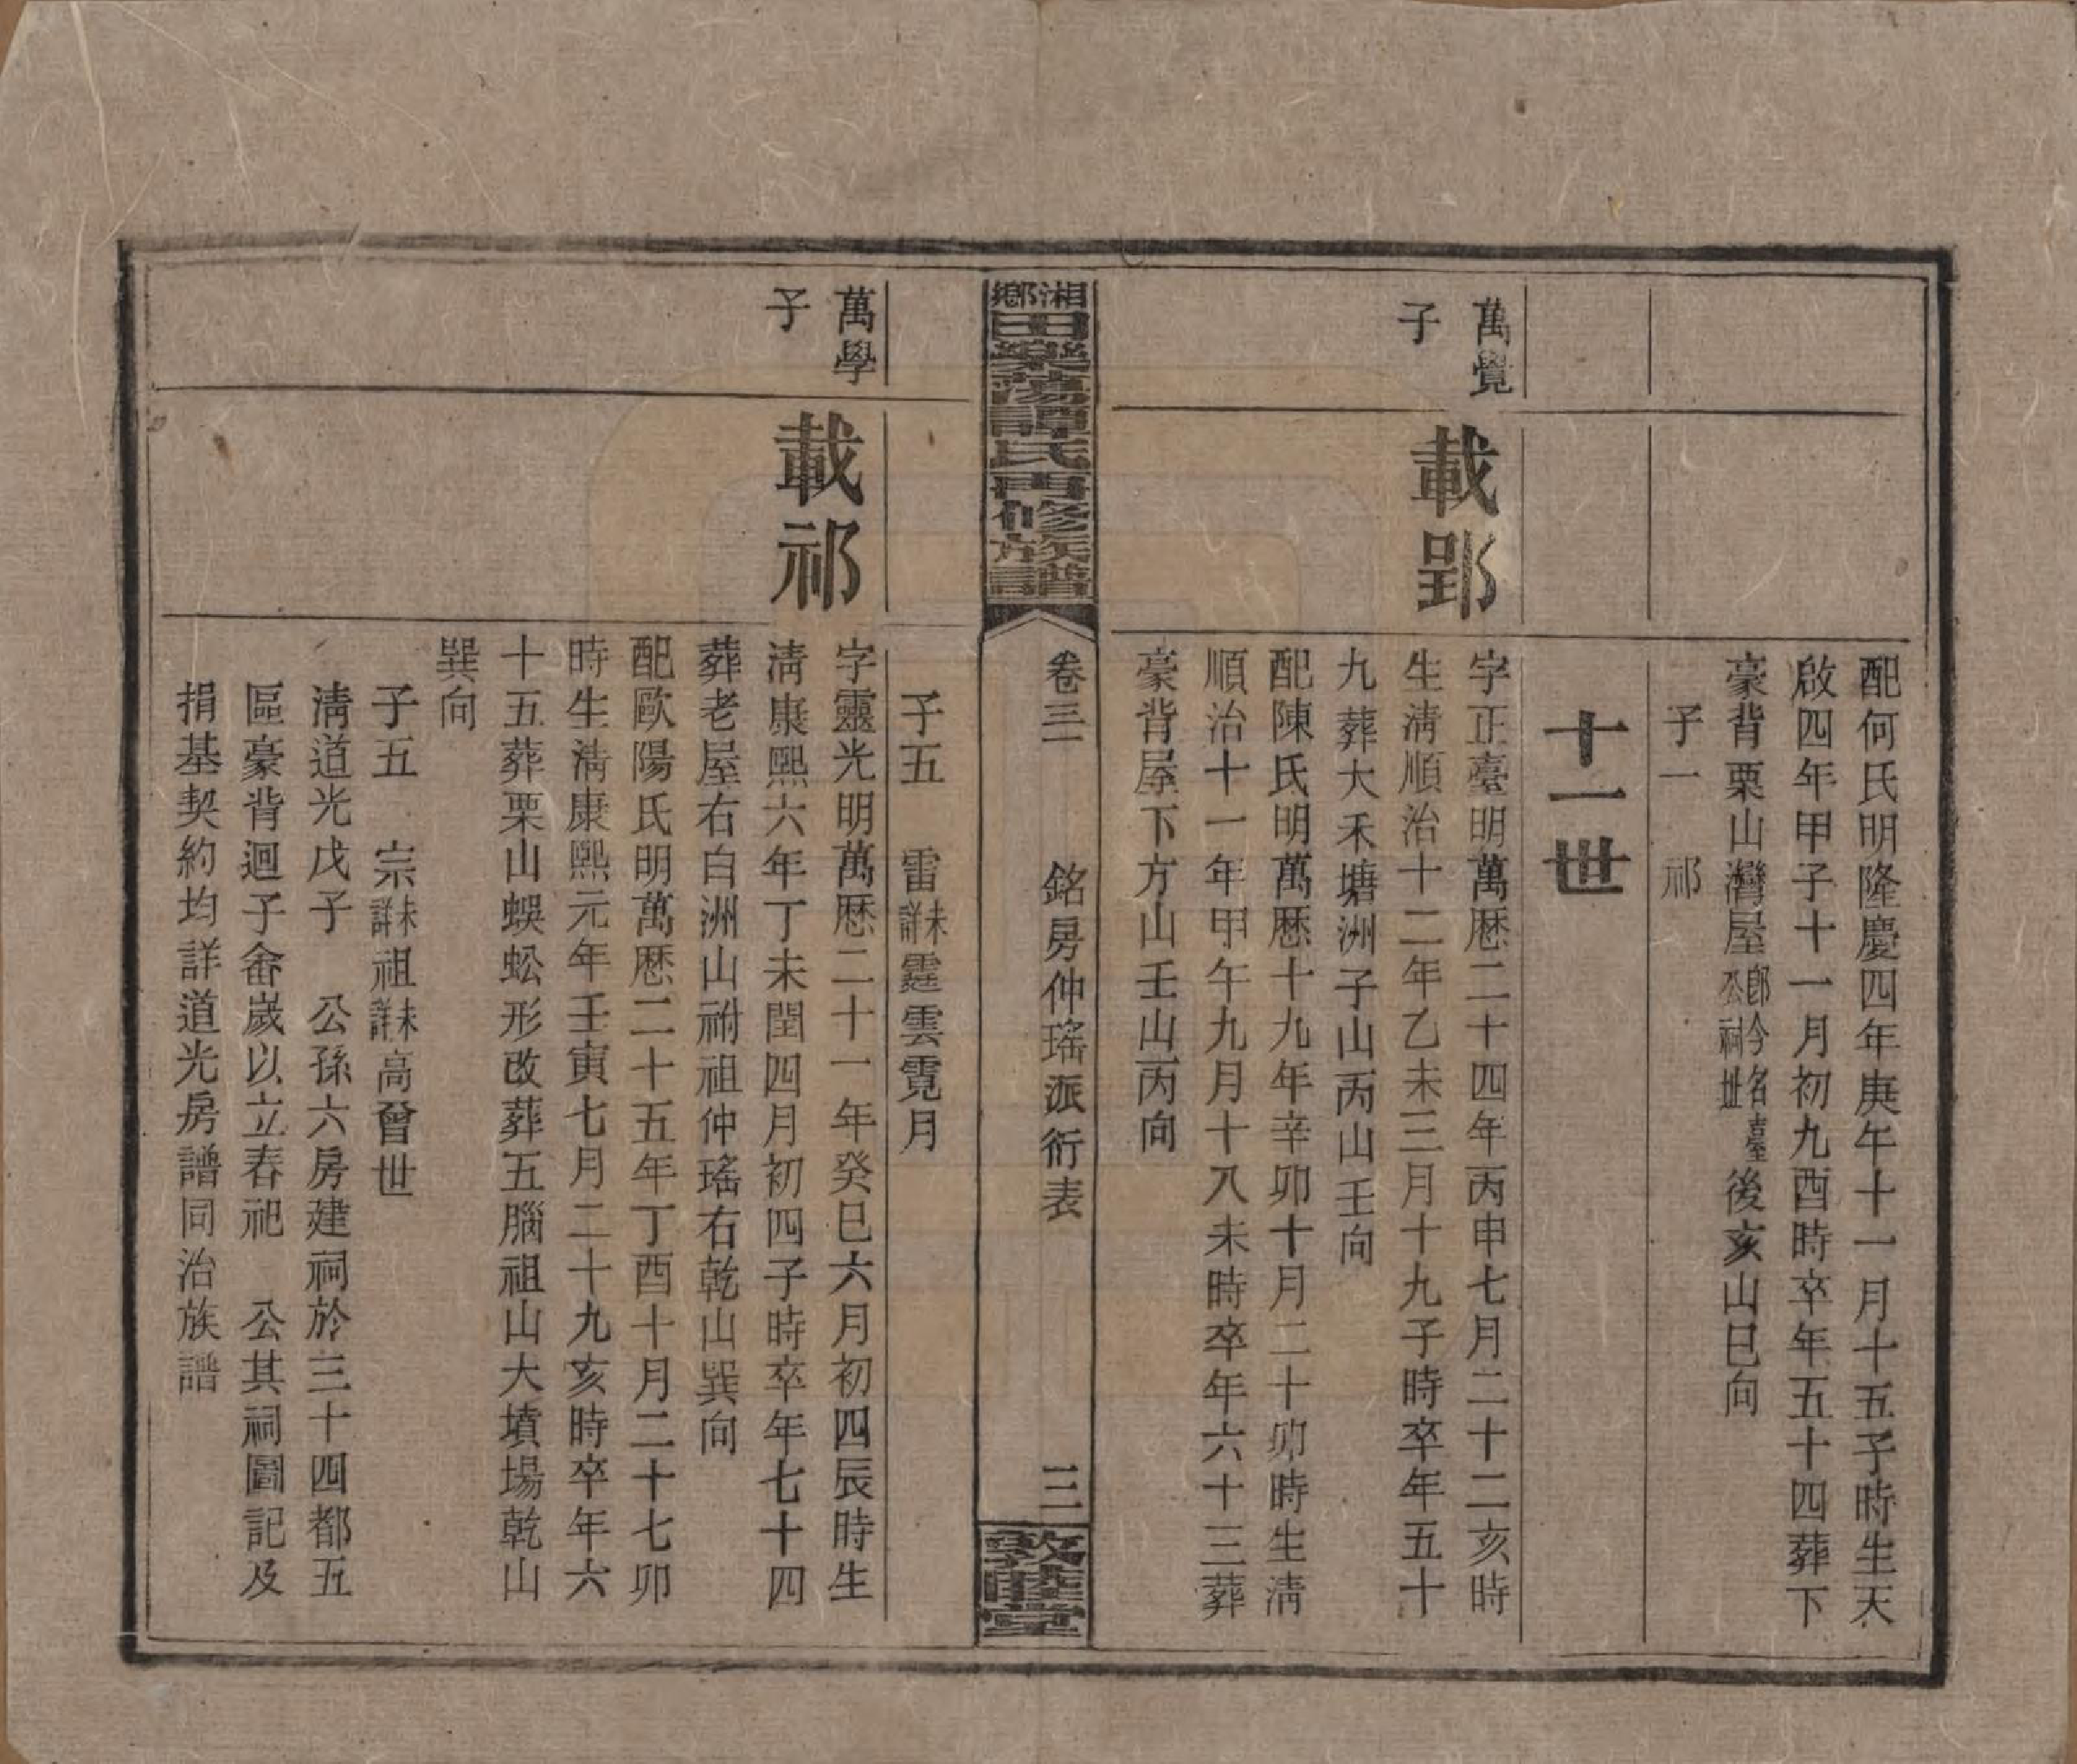 配何氏明隆慶四年庚午十一月十五子時生天
啟四年甲子十一月初九酉時卒年五十四葬下
豪背栗山灣屋卽今名吉臺公祠址後亥山巳向
子一　祁
十一世
萬覺
子
載郢
字正臺明萬厯二十四年丙申七月二十二亥時
生淸順治十二年乙未三月十九子時卒年五十
九葬大禾塘洲子山丙山壬向
配陳氏明萬厯十九年辛卯十月二十卯時生淸
順治十一年甲午九月十八未時卒年六十三葬
豪背屋下方山壬山丙向
湘鄉田樂蕩譚氏再修族譜
卷三　銘房仲瑤派衍表　三
敦睦堂
子五　雷未詳霆雲霓月
萬學
子
載祁
字靈光明萬厯二十一年癸巳六月初四辰時生
淸康熙六年丁未閏四月初四子時卒年七十四
葬老屋右白洲山祔祖仲瑤右乾山巽向
配歐陽氏明萬厯二十五年丁酉十月二十七卯
時生淸康熙元年壬寅七月二十九亥時卒年六
十五葬栗山蜈蚣形改葬五腦祖山大墳場乾山
巽向
子五　宗未詳祖未詳高曾世
淸道光戊子　公孫六房建祠於三十四都五
區豪背迴子畬歲以立春祀　公其祠圖記及
捐基契約均詳道光房譜同治族譜